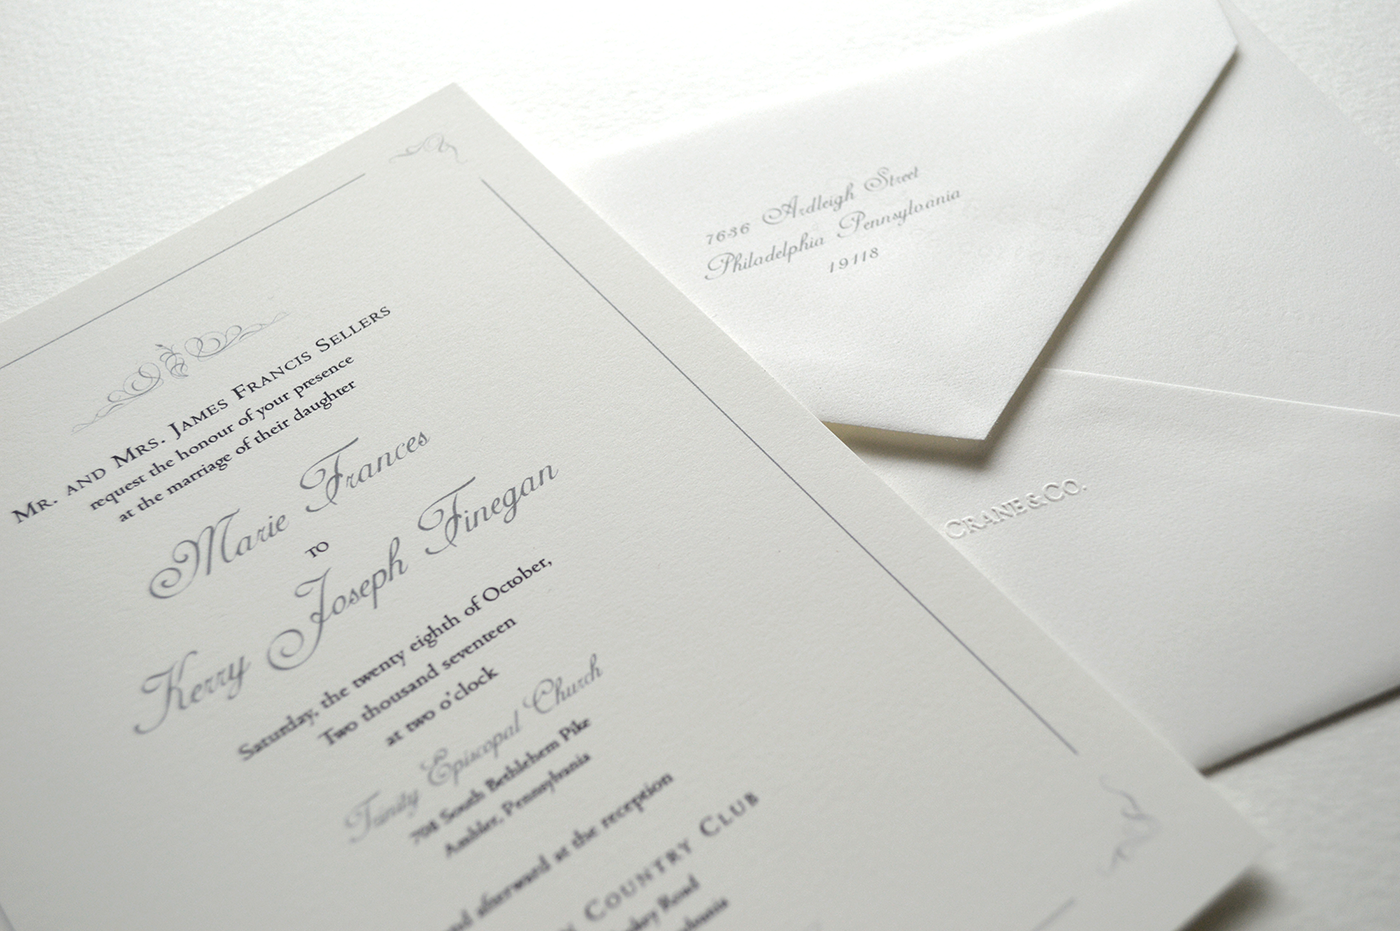 MR. AND MRS. JAMES FRANCIS SELLERS
request the honour of your presence
at the marriage of their daughter
Marie Frances
TO
Kerry Joseph Finegan
Saturday, the twenty eighth of October,
Two thousand seventeen
at two o'clock
Trinity Episcopal Church
708 South Bethlehem Pike
Ambler, Pennsylvania
afterward at the reception
COUNTRY CLUB
Road
7636 Ardleigh Street
Philadelphia Pennsylvania
19118
CRANE & CO.